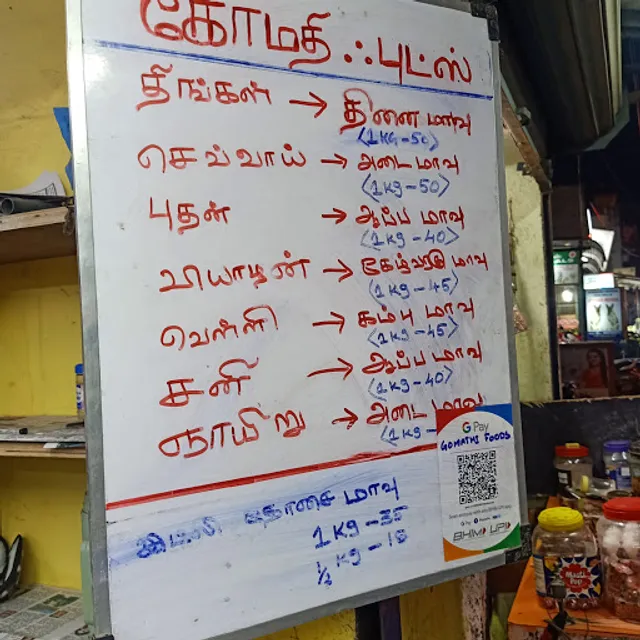 கோமதி ஃபுட்ஸ்
திங்கள் → தினை மாவு
<1KG-50>
செவ்வாய் → அடை மாவு
<1Kg-50>
புதன் → ஆப்ப மாவு
<1Kg-40>
வியாழன் → கேழ்வரகு மாவு
<1Kg-45>
வெள்ளி → கம்பு மாவு
<1Kg-45>
சனி → ஆப்ப மாவு
<1Kg-40>
ஞாயிறு → அடை மாவு
<1Kg-
தோசை மாவு
1Kg-35
½Kg-18
G Pay
GOMATHI FOODS
BHIM UPI